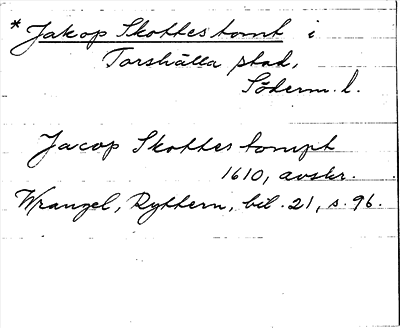 *Jakop Skottes tomt i
Torshälla stad,
Söderm. l.
Jacop Skottes tompt
1610, avskr.
Wrangel, Ryttern, bil. 21, s. 96.